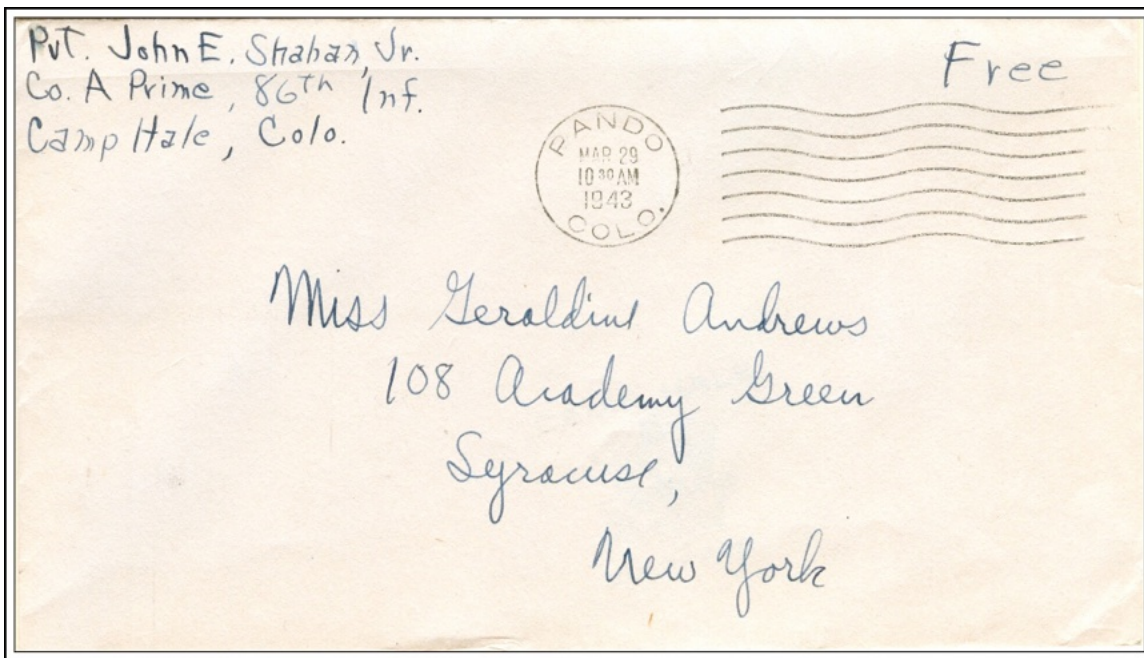 Pvt. John E. Shahan, Jr.
Co. A Prime, 86th Inf.
Camp Hale, Colo.
Free
PANDO
MAR 29
10 30 AM
1943
COLO.
Miss Geraldine Andrews
108 Academy Green
Syracuse,
New York